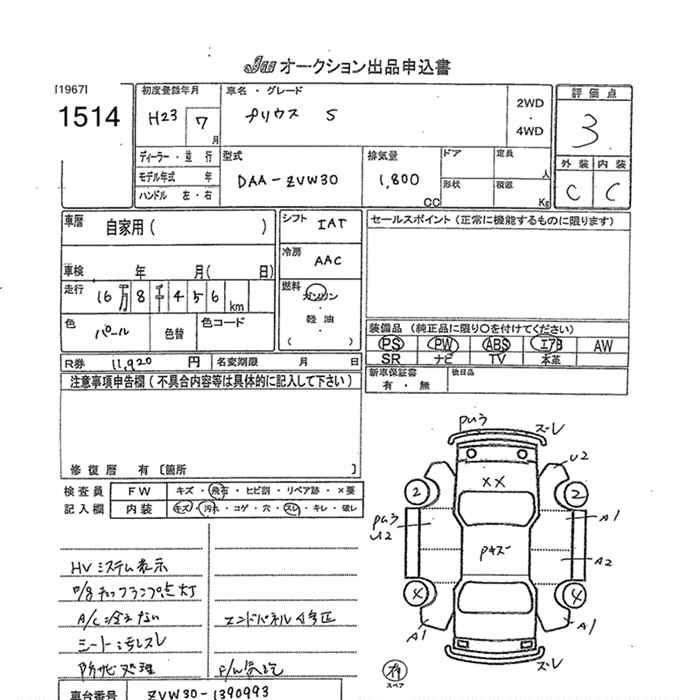 JU オークション出品申込書
[1967]
1514
初度登録年月
H23 7 月
車名・グレード
プリウス S
2WD
・
4WD
評価点
3
ディーラー・並行
モデル年式 年
ハンドル 左・右
型式
DAA-ZVW30
排気量
1,800 CC
ドア
定員 人
形状
積載 Kg
外装 内装
C C
車歴 自家用( )
シフト IAT
セールスポイント(正常に機能するものに限ります)
車検 年 月( 日)
冷房 AAC
走行 16万8千456km
燃料 ガソリン
・
軽油
・
( )
色 パール
色替
色コード
装備品(純正品に限り○を付けてください)
PS PW ABS エアB AW
SR ナビ TV 本革
R券 11,920 円
名変期限 月 日
新車保証書
有・無
後日品
注意事項申告欄(不具合内容等は具体的に記入して下さい)
修復歴 有〔箇所 〕
検査員
記入欄
FW キズ・飛石・ヒビ割・リペア跡・×要
内装 キズ・汚れ・コゲ・穴・スレ・キレ・破レ
HVシステム表示
A/C冷えない
エンドパネル修正
シート汚レスレ
防サビ処理
車台番号 ZVW30-1390993
Pu3
ズレ
U2
XX
2
2
Pu3
U2
A1
Pキズ
A2
4
4
A1
A1
ズレ
スペア